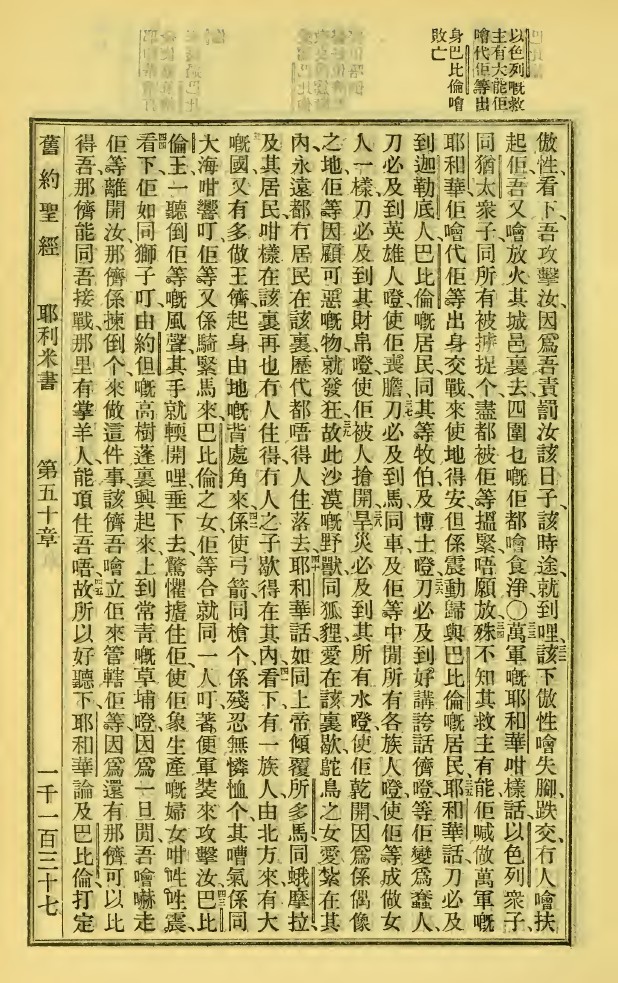 以色列嘅救
主有大能佢
噲代佢等出
身巴比倫噲
敗亡
傲性看下吾攻擊汝因爲吾責罰汝該日子該時途就到哩該下傲性噲失腳跌交冇人噲扶
起佢吾又噲放火其城邑裏去四圍乜嘅佢都噲食淨〇萬軍嘅耶和華咁樣話以色列衆子
同猶太衆子同所有被擄捉个盡都被佢等搵緊唔願放殊不知其救主有能佢喊做萬軍嘅
耶和華佢噲代佢等出身交戰來使地得安但係震動歸與巴比倫嘅居民耶和華話刀必及
到迦勒底人巴比倫嘅居民同其等牧伯及博士噔刀必及到好講誇話儕噔等佢變爲蠢人
刀必及到英雄人噔使佢喪膽刀必及到馬同車及佢等中間所有各族人噔使佢等成做女
人一樣刀必及到其財帛噔使佢被人搶開旱災必及到其所有水噔使佢乾開因爲係偶像
之地佢等因顧可惡嘅物就發狂故此沙漠嘅野獸同狐貍愛在該裏歇鴕鳥之女愛紮在其
內永遠都冇居民在該裏歷代都唔得人住落去耶和華話如同上帝傾覆所多馬同蛾摩拉
及其居民咁樣在該裏再也冇人住得冇人之子歇得在其內看下有一族人由北方來有大
嘅國又有多做王儕起身由地嘅背處角來係使弓箭同槍个係殘忍無憐恤个其嘈氣係同
大海咁響叮佢等又係騎緊馬來巴比倫之女佢等合就同一人叮著便軍裝來攻擊汝巴比
倫王一聽倒佢等嘅風聲其手就輭開哩垂下去驚懼攎住佢使佢象生產嘅婦女咁𠯗𠯗震
看下佢如同獅子叮由約但嘅高樹蓬裏興起來上到常青嘅草埔噔因爲一旦間吾噲嚇走
佢等離開汝那儕係揀倒个來做這件事該儕吾噲立佢來管轄佢等因爲還有那儕可以比
得吾那儕能同吾接戰那里有掌羊人能頂住吾唔故所以好聽下耶和華論及巴比倫打定
舊約聖經 耶利米書 第五十章 一千一百三十七